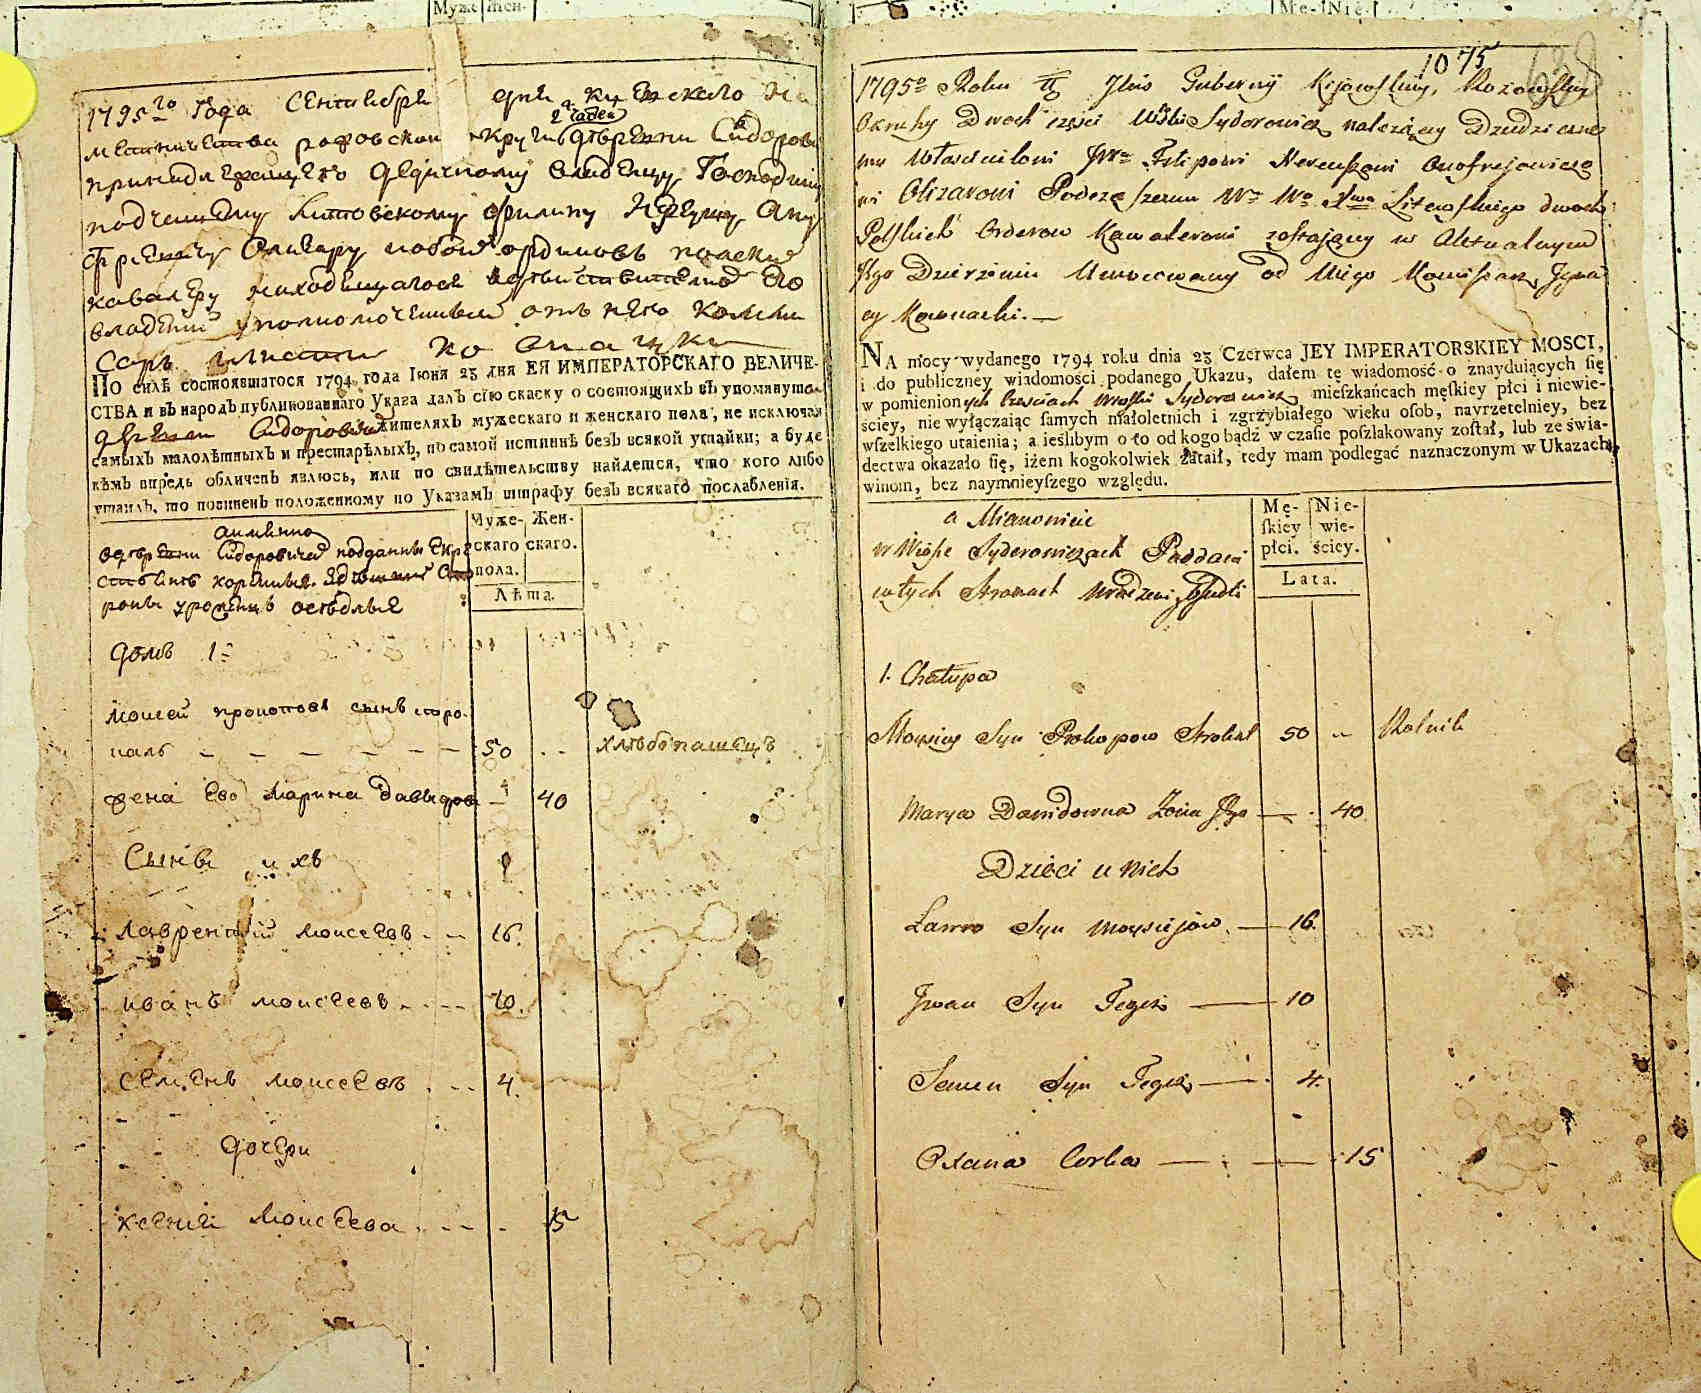 Муже Жен-
1795го Года Сентебря дня Киевскаго На
2 частей
местничества рафовской округи деревни Сидорови
принадлежащего дедичному владельцу Господину
подчашему Литовскому Филипу Нерею Ону
фриевичу Олизару обоих ординовъ польских
кавалеру находящагося в действителном его
владении уполномоченным отъ него коми
Саръ
ПО силѣ состоявшагося 1794 года Іюня 23 дня ЕЯ ИМПЕРАТОРСКАГО ВЕЛИЧЕ-
СТВА и въ народъ публикованнаго Указа далъ сію скаску о состоящихъ въ упомянутой
деревни Сидоровича жителяхъ мужескаго и женскаго пола, не исключая
самыхъ малолѣтныхъ и престарѣлыхъ, по самой истиннѣ безъ всякой утайки; а буде
кѣмъ впредь обличенъ явлюсь, или по свидѣтельству найдется, что кого либо
утаилъ, то повиненъ положенному по Указамъ штрафу безъ всякаго послабленія.
а имянно
в деревни Сидоровичах подданные
коренные здешней сто
роны уроженцы оседлые
Муже- Жен-
скаго скаго.
пола.
Лѣта.
домъ 1:
Моисей прокоповъ сынъ
50 хлебопашецъ
жена его Марина давыдова — 40
Сыны ихъ
Лаврентий моисеевъ 16.
иванъ моисеевъ 10.
семенъ моисеевъ 4.
дочери
Ксения Моисеева 15
Mę- Nie-
1075
1795o Roku Guberny Kijowskiey,
Okruhy Dwoch części Wioski Sydorowicz należący Dziedziczne
mu Właścicielowi JWu Filipowi Nereuszowi Onofrejowiczo
wi Olizarowi Podczaszemu Wo Xwa Litewskiego dwoch
Polskich Orderow Kawalerowi zostający w Aktualnym
Jego Dzierżeniu Umocowany od Niego Komisarz
NA mocy wydanego 1794 roku dnia 23 Czerwca JEY IMPERATORSKIEY MOSCI,
i do publiczney wiadomości podanego Ukazu, dałem tę wiadomość o znayduiących się
w pomienionych Częsciach Wioski Sydorowicz mieszkańcach męskiey płci i niewie-
ściey, nie wyłączaiąc samych małoletnich i zgrzybiałego wieku osob, nayrzetelniey, bez
wszelkiego utaienia; a ieślibym o to od kogo bądź w czasie poszlakowany został, lub ze świa-
dectwa okazało się, iżem kogokolwiek zataił, tedy mam podlegać naznaczonym w Ukazach
winom, bez naymnieyszego względu.
a Mianowicie
w Wiosce Sydorowiczach Poddani
w tych Stronach Urodzeni
Mę- Nie-
skiey wie-
płci. ściey.
Lata.
1. Chałupa
Moysiey Syn Prokopow 50 Rolnik
Marya Dawidowna Zona Jego — 40
Dzieci u Nich
Ławro Syn Moysiejow. — 16.
Jwan Syn Tegoż — 10
Semen Syn Tegoż — 4.
Oxana Corka — 15